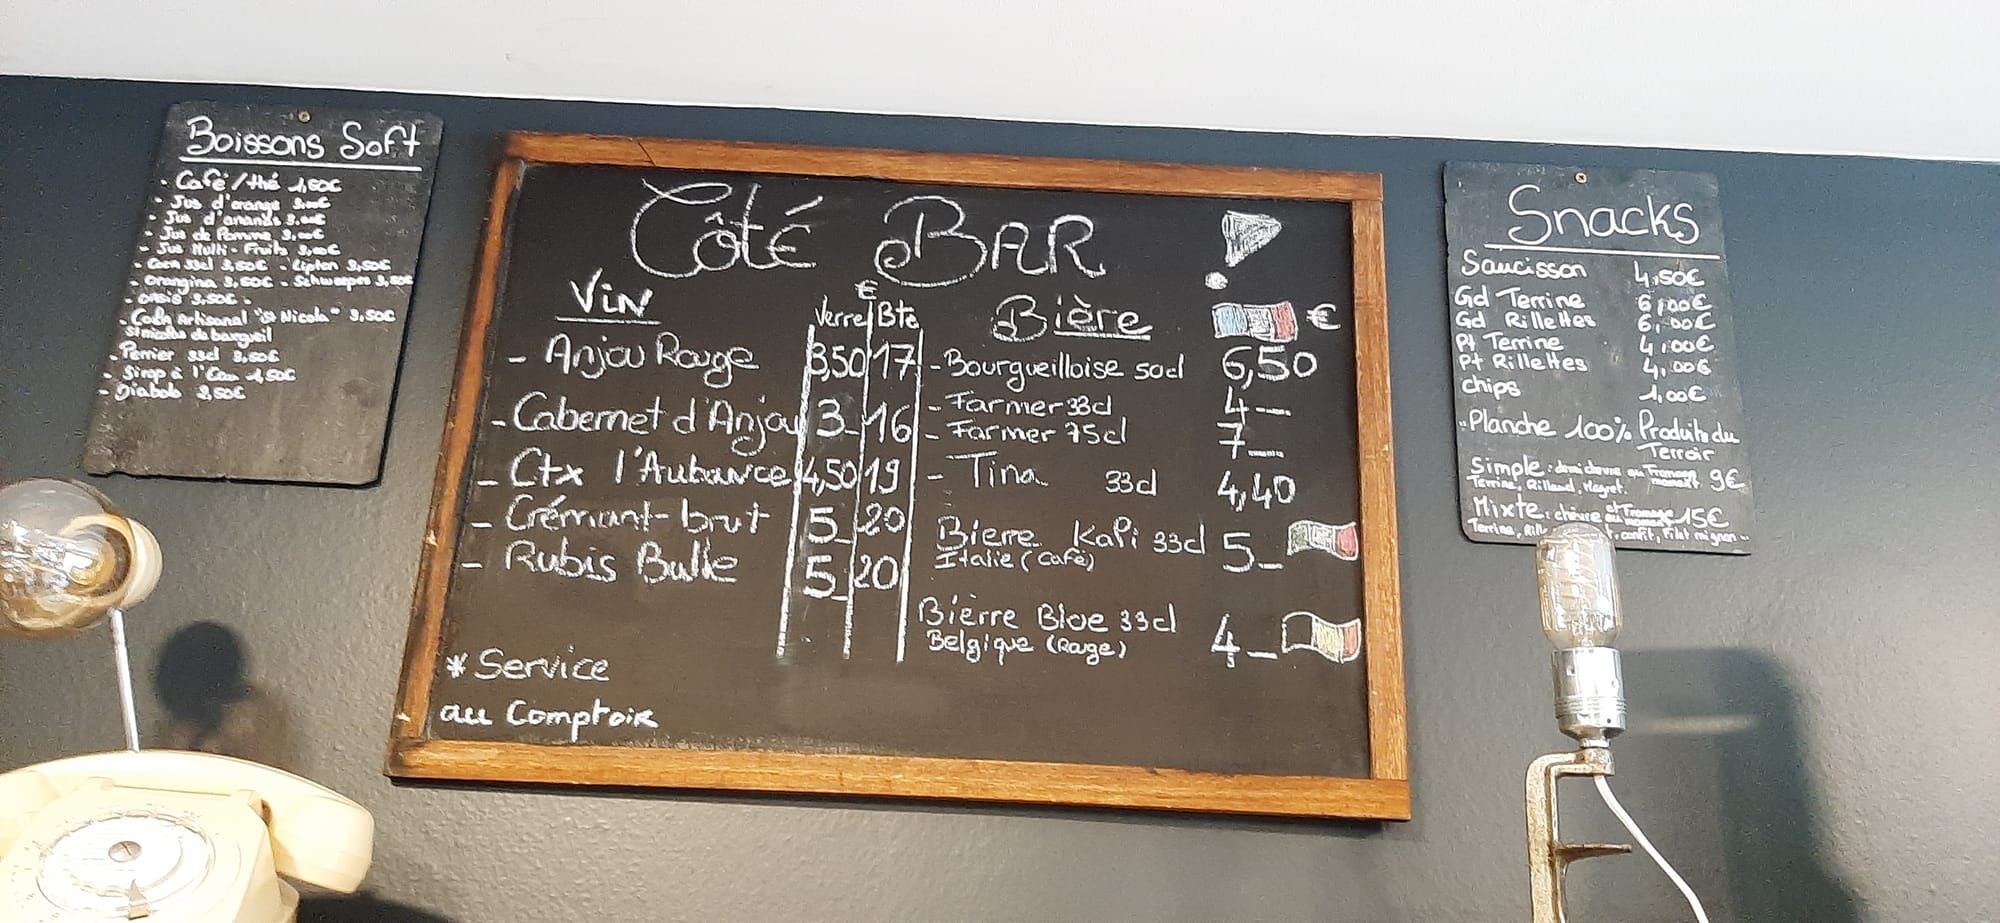 Boissons Soft
- Café/thé 1,50€
- Jus d'orange 3,00€
- Jus d'ananas 3,00€
- Jus de Pomme 3,00€
- Jus Multi-Fruits 3,00€
- Coca 33cl 3,50€ - Lipton 3,50€
- Orangina 3,50€ - Schweppes 3,50€
- Oasis 3,50€.
- Cola Artisanal "St Nicola" 3,50€
St nicolas de bourgueil
- Perrier 33cl 3,50€
- Sirop à l'Eau 1,50€
- Diabolo 2,50€
Côté BAR
Vin
€
Verre Bte
- Anjou Rouge 3,50 17
- Cabernet d'Anjou 3_ 16
- Ctx l'Aubance 4,50 19
- Crémant brut 5_ 20
- Rubis Bulle 5_ 20
* Service
au Comptoir
Bière €
- Bourgueilloise 50cl 6,50
- Farmer 33cl 4_
- Farmer 75cl 7_
- Tina 33cl 4,40
Bierre Kapi 33cl 5_
Italie (Café)
Bièrre Bloe 33cl 4_
Belgique (Rouge)
Snacks
Saucisson 4,50€
Gd Terrine 6,00€
Gd Rillettes 6,00€
Pt Terrine 4,00€
Pt Rillettes 4,00€
chips 1,00€
Planche 100% Produits du
Terroir
Simple: demi chèvre ou Fromage 9€
Terrine, Rillaud, Magret.
Mixte: chèvre Fromage 15€
Terrine, confit, Filet mignon